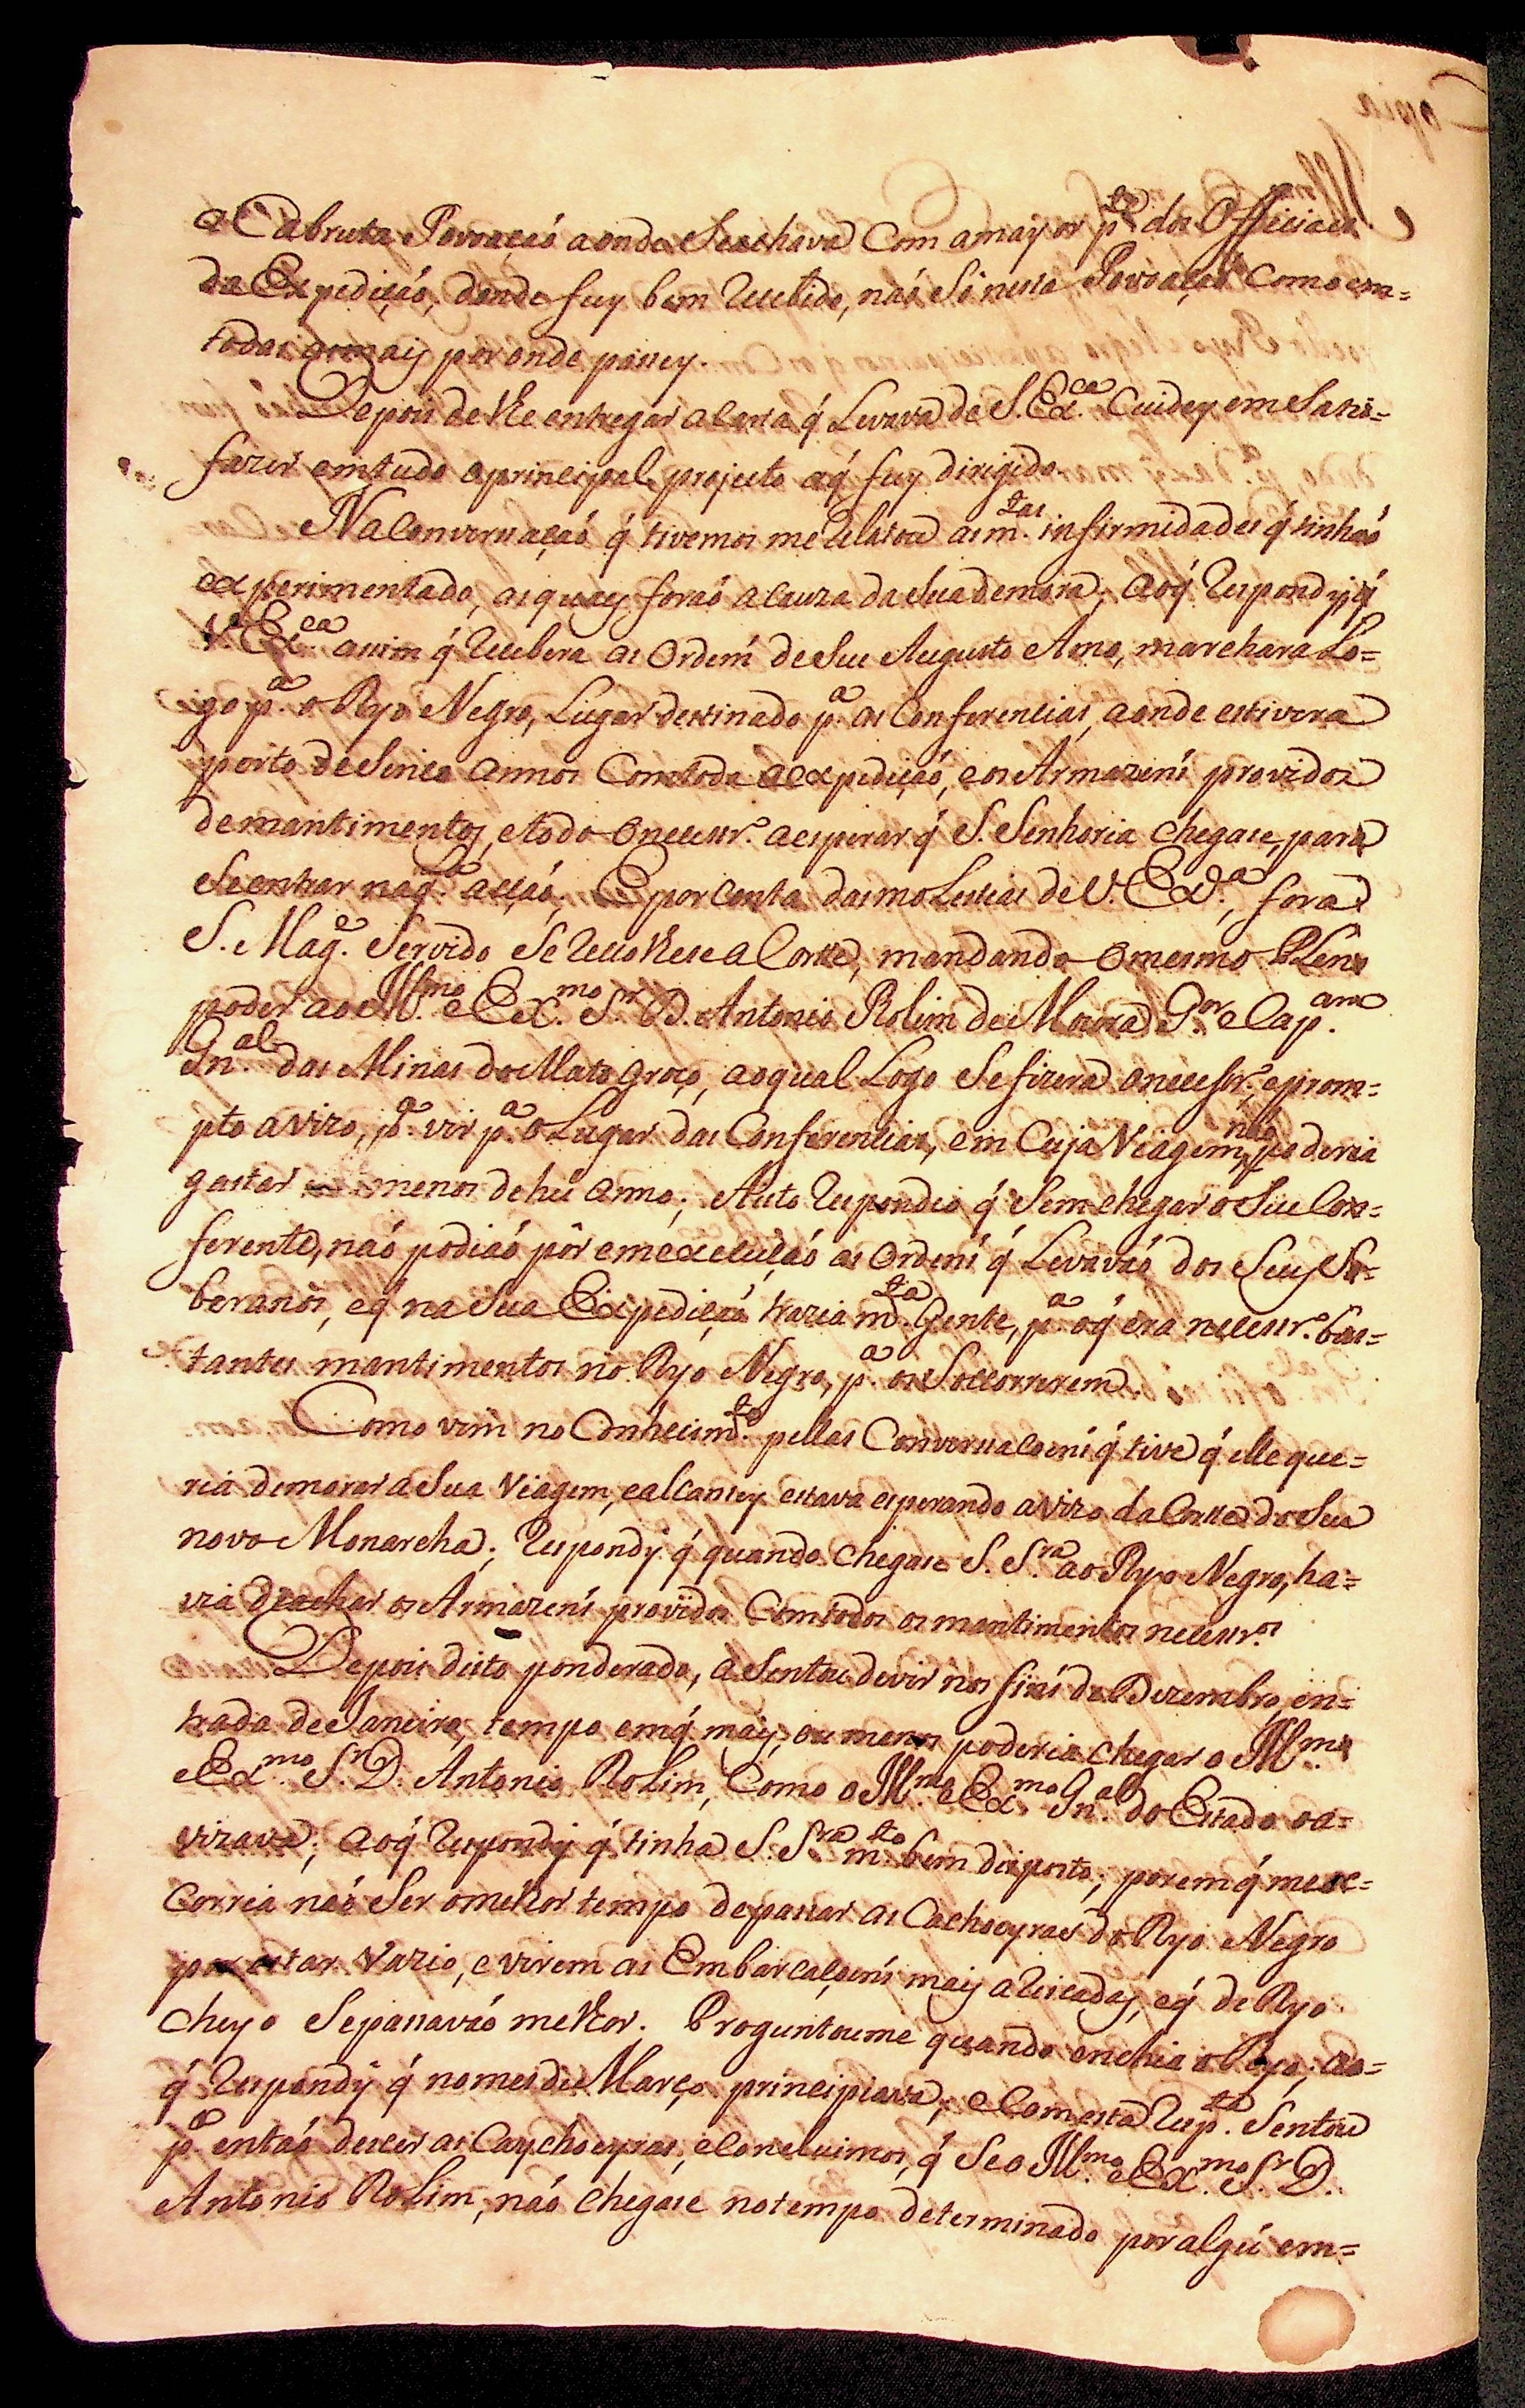 a Cabruta Povoaçaõ aonde Se achava Com a mayor p.te dos Officiaes
da Expediçaõ, donde fuy bem Recebido, naõ Só nesta Povoaçaõ Como em=
todas as mais por onde passey.
Depois de lhe entregar a Carta q̃ Levava de S. Ex.ca Cuidey em Satis=
fazer em tudo o principal projecto a q̃ fuy dirigido.
Na Conversaçaõ q̃ tivemos me Relatou as m.tas infirmidades q̃ tinhaõ
experimentado, as quaes foraõ a Cauza da Sua demora; ao q̃ Respondy q̃
V. Ex.ca assim q̃ Recebera as Ordens de Seu Augusto Amo, marchara Lo=
go p.a o Ryo Negro, Lugar destinado p.a as Conferencias, aonde estivera
perto de Sinco annos Com toda a expediçaõ, e os Armazens providos
de mantimentos, e todo o necess.o a esperar q̃ S. Senhoria chegase, para
Se entrar naq.la acçaõ; E por Conta das molestias de V. Ex.a, fora
S. Mag.e Servido Se Recolhese a Corte, mandando o mesmo Plen
poder ao Ill.mo e Ex.mo S.r D. Antonio Rolim de Moura G.or e Cap.am
Gn.al das Minas do Mato groço, ao qual Logo Se fizera o necessr.o, e prom=
pto avizo, p.a vir p.a o Lugar das Conferencias, em Cuja Viagem naõ poderia
gastar menos de hũ anno; A isto Respondeo q̃ Sem chegar o Seu Con=
ferente, naõ podiaõ pôr em execuçaõ as Ordens q̃ Levavaõ dos Seus So=
beranos, e q̃ na Sua Expediçaõ trazia m.ta Gente, p.a o q̃ era necessr.o bas=
tantes mantimentos no Ryo Negro, p.a os Socorrerem.
Como vim no Conhecim.to pellas Conversacoens q̃ tive q̃ elle que=
ria demorar a Sua Viagem, e alcansey estava esperando avizo da Corte do Seu
novo Monarcha; Respondy q̃ quando chegase S. S.ra ao Ryo Negro, ha=
via de achar os Armazens providos Com todos os mantimentos necessr.os
Depois disto ponderado, a Sentou de vir nos fins de Dezembro, en=
trada de Janeiro, tempo em q̃ mais, ou menos poderia chegar o Ill.mo
e Ex.mo S.r D. Antonio Rolim, Como o Ill.mo e Ex.mo Gn.al do Estado o a=
vizava; ao q̃ Respondy q̃ tinha S. S.ra m.to bem disposto; porem q̃ me oc=
corria naõ Ser o melhor tempo de passar as Cachoeyras do Ryo Negro
por estar Vazio, e virem as Embarcaçoens mais a Riscadas, e q̃ de Ryo
cheyo Se passavaõ melhor. Proguntoume quando enchia o Ryo; ao=
q̃ Respondy q̃ no mes de Março principiava; e Com esta Resp.ta Sentou
p.a entaõ descer as Caychoeyras, e concluimos, q̃ Se o Ill.mo e Ex.mo S.r D.
Antonio Rolim, naõ chegase no tempo determinado por algũ em=